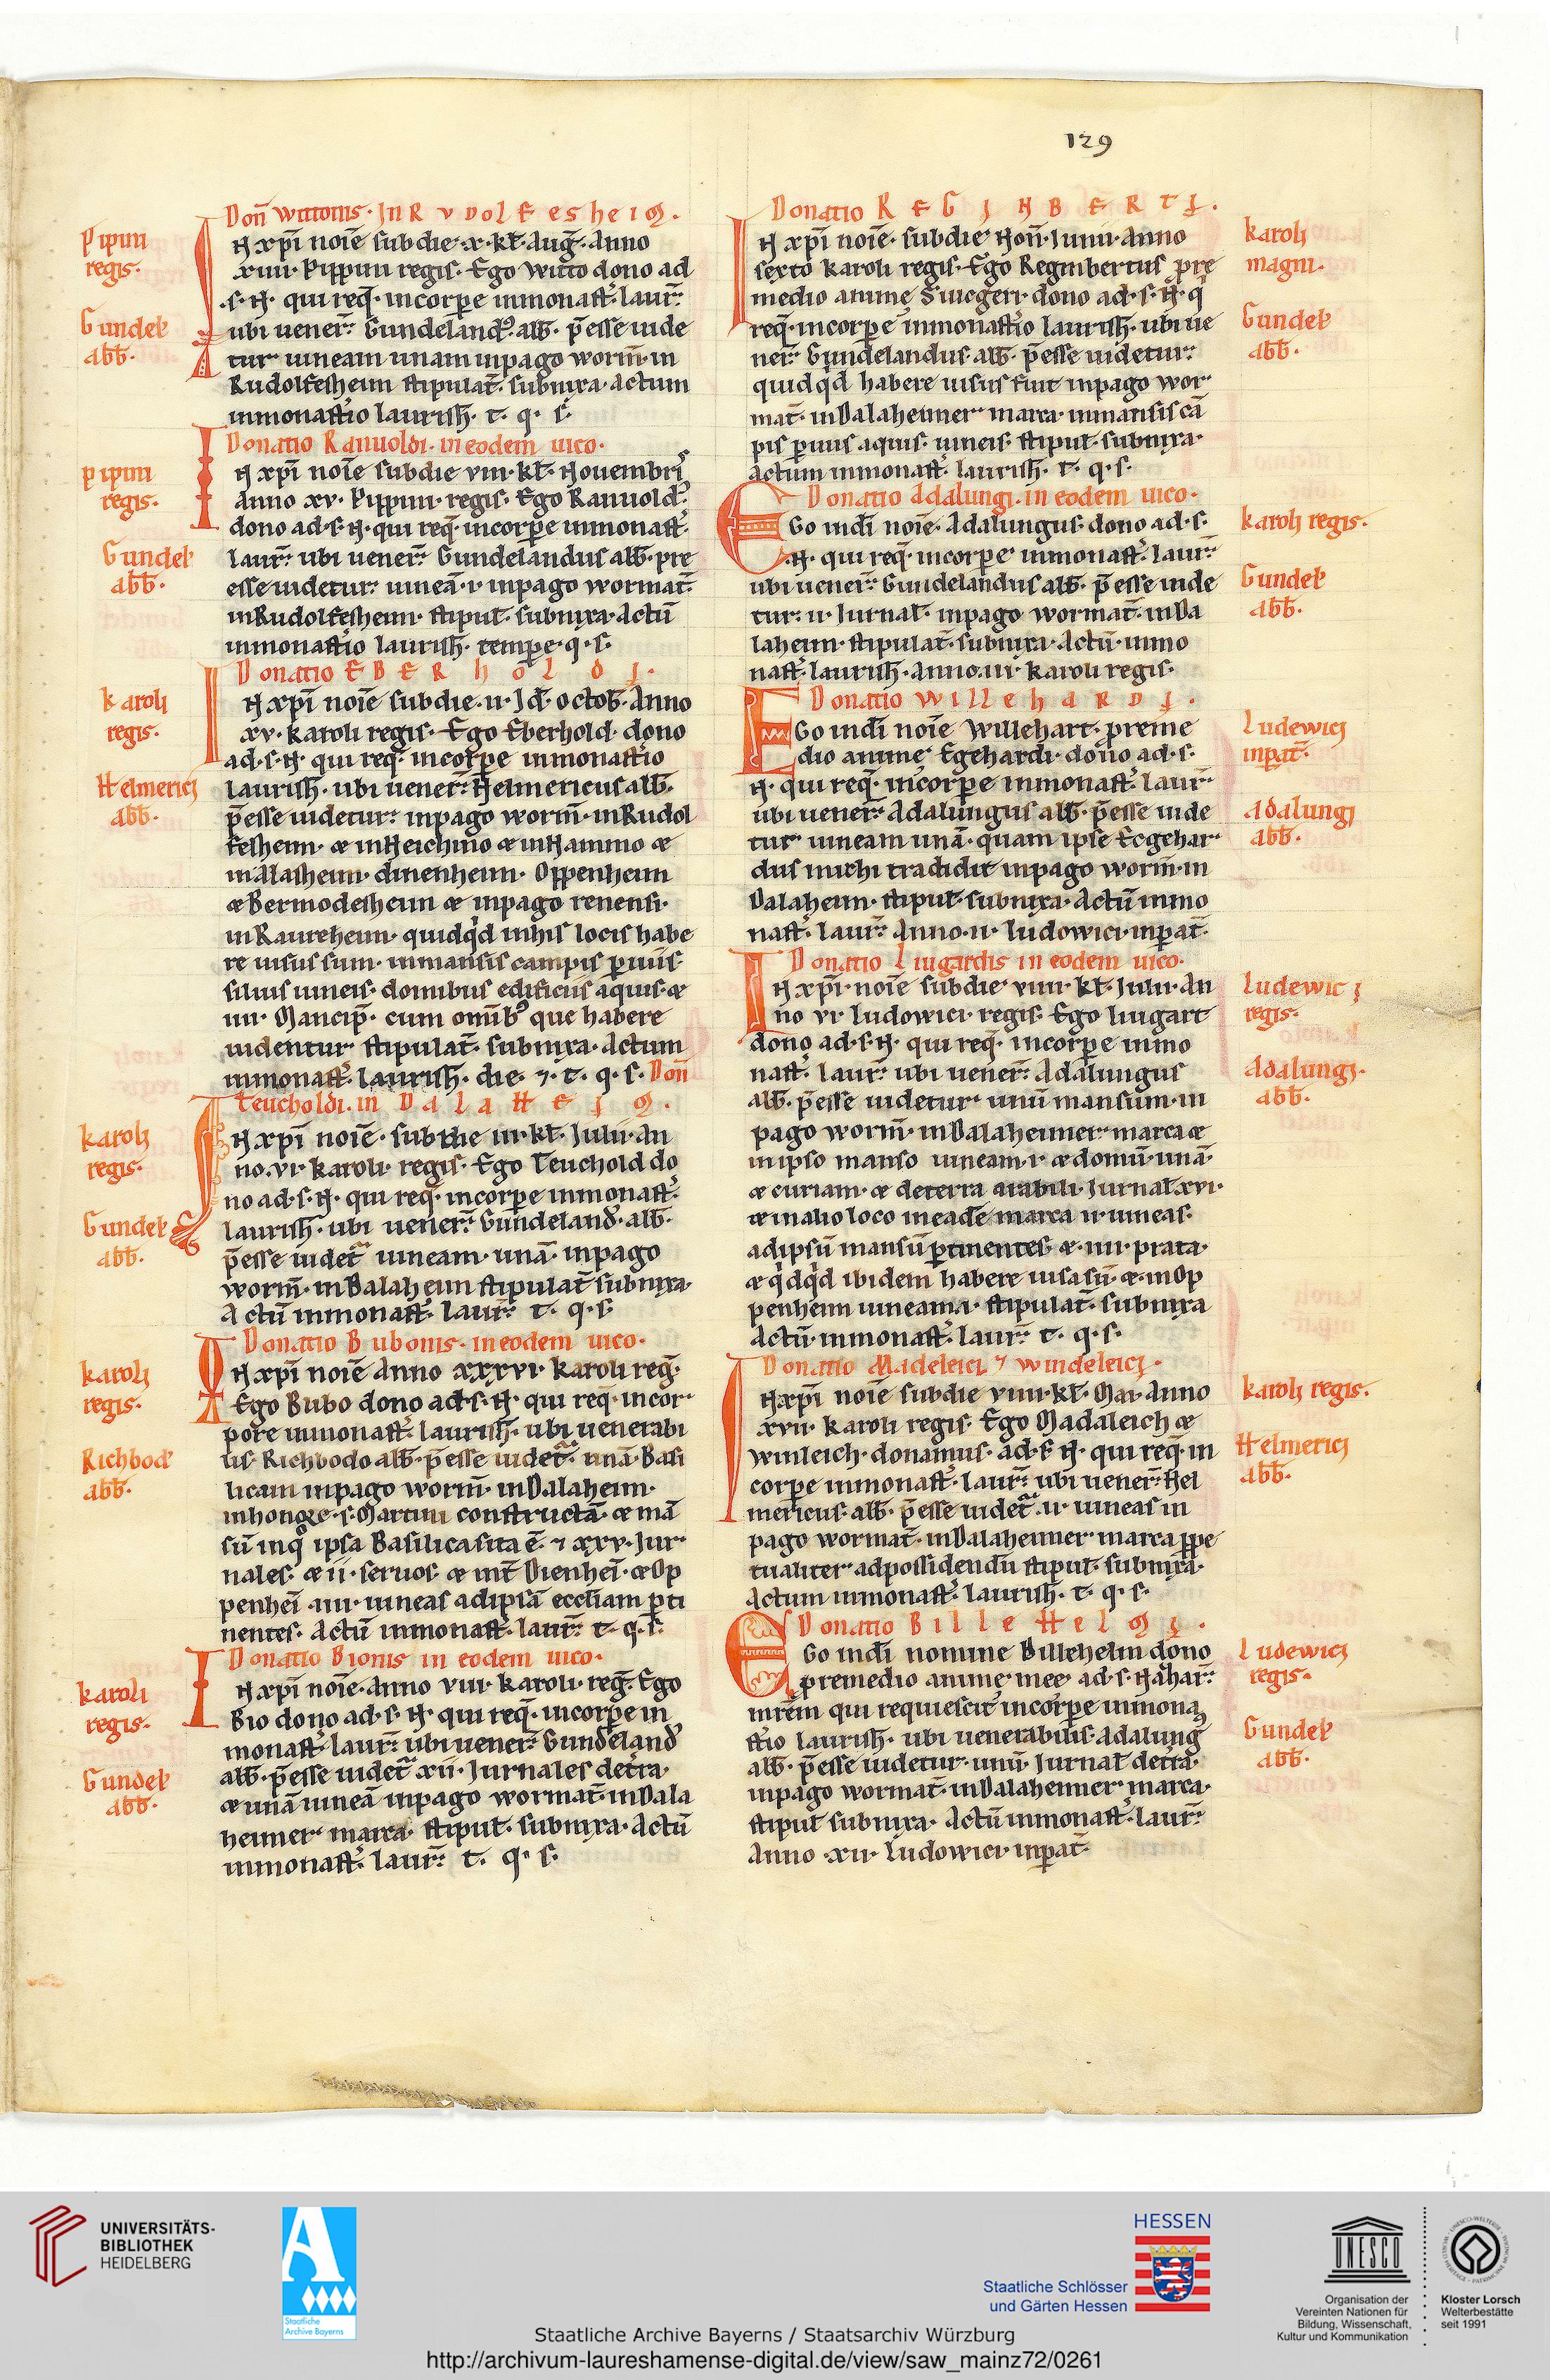 129
Pipini
regis.
Gundel
abb.
Don̄ Wittonis. In RVDOLFESHEIM.
IN xp̄i noīe sub die. x. kƚ. Aug̅. Anno
xiiii. Pippini regis. Ego Witto dono ad
.s. N. qui req̄. in corꝑe in monast̅. laur̄
ubi uener̄. Gundeland᷒. abb. p̄esse uide
tur uineam unam in pago worm̄. in
Rudolfesheim stipulat̅. subnixa. Actum
in monast̅io laurish̅. t. q. s̄.
Pipini
regis.
Gundel
abb.
Donatio Ranuoldi. in eodem uico.
IN xp̄i noīe sub die viii. kƚ. Nouembris
Anno xv. Pippini. regis. Ego Ranuold᷒
dono ad. s. N. qui req̄. in corꝑe in monast̅.
laur̄. ubi uener̄. Gundelandus abb. pre
esse uidetur. uineā. i. in pago wormat̅.
in Rudolfesheim. stipul̅. subnixa. Actū
in monast̅io laurish̅. tempe. q. s̄.
Karoli
regis.
Helmerici
abb.
Donatio EBERHOLDI.
IN xp̄i noīe sub die. ii. Id̅. octob̅. Anno
xv. Karoli regis. Ego Eberhold. dono
ad. s. N. qui req̄. in corꝑe in monast̅io
laurish̅. ubi uener̄. Helmericus abb.
p̄esse uidetur. in pago worm̄. in Rudol
fesheim. & in Heichino & in Hammo &
in Alasheim. dinenheim. Oppenheim
& Bermodesheim & in pago renensi.
in Raureheim. quidq̇d in his locis habe
re uisus sum. in mansis campis ꝑuiis
siluis uineis. domibus edificiis aquis. &
iiii. Mancip̄. cum omīb᷒ que habere
uidentur stipulat̅. subnixa. Actum
in monast̅. laurish̅. die. ⁊. t. q. s. Don̄
Karoli
regis.
Gundel
abb.
Teucholdi. in DALAHEIM.
IN xp̄i noīe. sub die iii. kƚ. Julii. An
no. vi. Karoli. regis. Ego Teuchold do
no ad. s. N. qui req̄. in corꝑe in monast̅.
laurish̅. ubi uener̄. Gundeland̄. abb.
p̄esse uidet̄ uineam. unā. in pago
worm̄. in Dalaheim stipulat̅ subnixa.
Actū in monast̅. laur̄. t. q. s̄
Karoli
regis.
Richbod̄
abb.
Donatio Bubonis. in eodem uico.
IN xp̄i noīe Anno xxxvi. Karoli reg̅.
Ego Bubo dono ad. s. N. qui req. in cor
pore in monast̅. laurish̅. ubi uenerabi
lis. Richbodo abb. p̄esse uidet̄. unā. Basi
licam in pago worm̄. in Dalaheim.
in honore. s. Martini constructā. & mā
sū in q̊ ipsa Basilica sita ē. ⁊ xxv. Jur
nales. & ii. seruos. & int̄ Dienheī. & Op
penheī. iiii. uineas ad ipsā eccƚiam ꝑti
nentes. Actū in monast̅. laur̄. t. q. s̄.
Karoli
regis.
Gundel
abb.
Donatio Bionis in eodem uico.
IN xp̄i noīe. Anno viii. Karoli. reg̅. Ego
Bio dono ad. s. N. qui req̄. in corꝑe in
monast̅. laur̄. ubi uener̄. Gundeland̄
abb. p̄esse uidet̄ xii. Jurnales de t̄ra.
& unā uineā in pago wormat̅. in Dala
heimer marca. stipul̅. subnixa. Actū
in monast̅. laur̄. t. q. s̄.
Karoli
magni.
Gundel
abb.
Donatio REGINBERTI.
IN xp̄i noīe. sub die Non̄. Iunii. Anno
sexto Karoli regis. Ego Reginbertus pre
medio anime Suiegeri. dono ad. s. N. q̇
req̄. in corꝑe in monast̅io laurish̅. ubi ue
ner̄. Gundelandus. abb. p̄esse uidetur.
quidq̇d habere uisus fuit in pago wor
mat̅. in Dalaheimer marca. in mansis cā
pis ꝑuiis aquis. uineis. stipul̅. subnixa.
Actum in monast̅. laurish̅. t. q. s.
Karoli regis.
Gundel
abb.
Donatio Adalungi. in eodem uico.
EGo in dī noīe. Adalungus. dono ad. s.
.N. qui req̄. in corꝑe in monast̅. laur̄
ubi uener̄. Gundelandus abb. p̄esse uide
tur. ii. Jurnal̅. in pago wormat̅. in Da
laheim. stipulat̅. subnixa. Actū. in mo
nast̅. laurish̅. Anno. iii. Karoli regis.
Ludewici
inpat̅.
Adalungi
abb.
Donatio WilleHARDI.
EGo in dī noīe Willehart. preme
dio anime Egehardi. dono ad. s.
N. qui req̄. in corꝑe in monast̅. laur̄
ubi uener̄. Adalungus abb. p̄esse uide
tur uineam unā. quam ipse Ecgehar
dus michi tradidit in pago worm̄. in
Dalaheim. stipul̅. subnixa. Actū in mo
nast̅. laur̄. Anno. ii. ludowici. inꝑat̅.
Ludewici
regis.
Adalungi.
abb.
Donatio Liugardis in eodem uico.
IN xp̄i. noīe sub die viiii. kƚ. Julii. An
no vi ludowici. regis. Ego liugart
dono ad. s. N. qui req̄. in corꝑe in mo
nast̅. laur̄. ubi uener̄. Adalungus
abb. p̄esse uidetur unū mansum. in
pago worm̄. in Dalaheimer marca &
in ipso manso uineam. i. & domū. unā.
& curiam. & de terra arabili. Jurnal̅. xvi.
& in alio loco in eadē marca ii. uineas.
ad ipsū mansū ꝑtinentes. & . iiii. prata.
& q̇dq̇d ibidem habere uisa sū. & . in Op
penheim uineam. i. stipulat̅. subnixa
Actū. in monast̅. laur̄. t. q. s.
Karoli regis.
Helmerici
abb.
Donatio Madeleici ⁊ Windeleici.
IN xp̄i noīe sub die viiii. kƚ. Mar. Anno
xvii. Karoli regis. Ego Madaleich &
winleich. donamus. ad. s. N. qui req̄. in
corꝑe in monast̅. laur̄. ubi uener̄. Hel
mericus. abb. p̄esse uidet̄. ii. uineas in
pago wormat̅. in Dalaheimer marca ꝑpe
tualiter ad possidendū stipul̅. subnixa.
Actum in monast̅. laurish̅. t. q. s.
Ludewici
regis.
Gundel
abb.
Donatio BilleHelMI.
EGo in dī nomine Billehelm dono
premedio anime mee ad. s. Nahar̄.
mrēm qui requiescit in corꝑe in mona
st̅io laurish̅. ubi uenerabilis. Adalung̅
abb. p̄esse uidetur. unū. Jurnal̅ de t̄ra.
in pago wormat̅. in Dalaheimer marca.
stipul̅ subnixa. Actū in monast̅. laur̄
Anno xii. ludowici. inꝑat̅
UNIVERSITÄTS-
BIBLIOTHEK
HEIDELBERG
Staatliche
Archive Bayerns
HESSEN
Staatliche Schlösser
und Gärten Hessen
UNESCO
Organisation der
Vereinten Nationen für
Bildung, Wissenschaft,
Kultur und Kommunikation
Kloster Lorsch
Welterbestätte
seit 1991
Staatliche Archive Bayerns / Staatsarchiv Würzburg
http://archivum-laureshamense-digital.de/view/saw_mainz72/0261